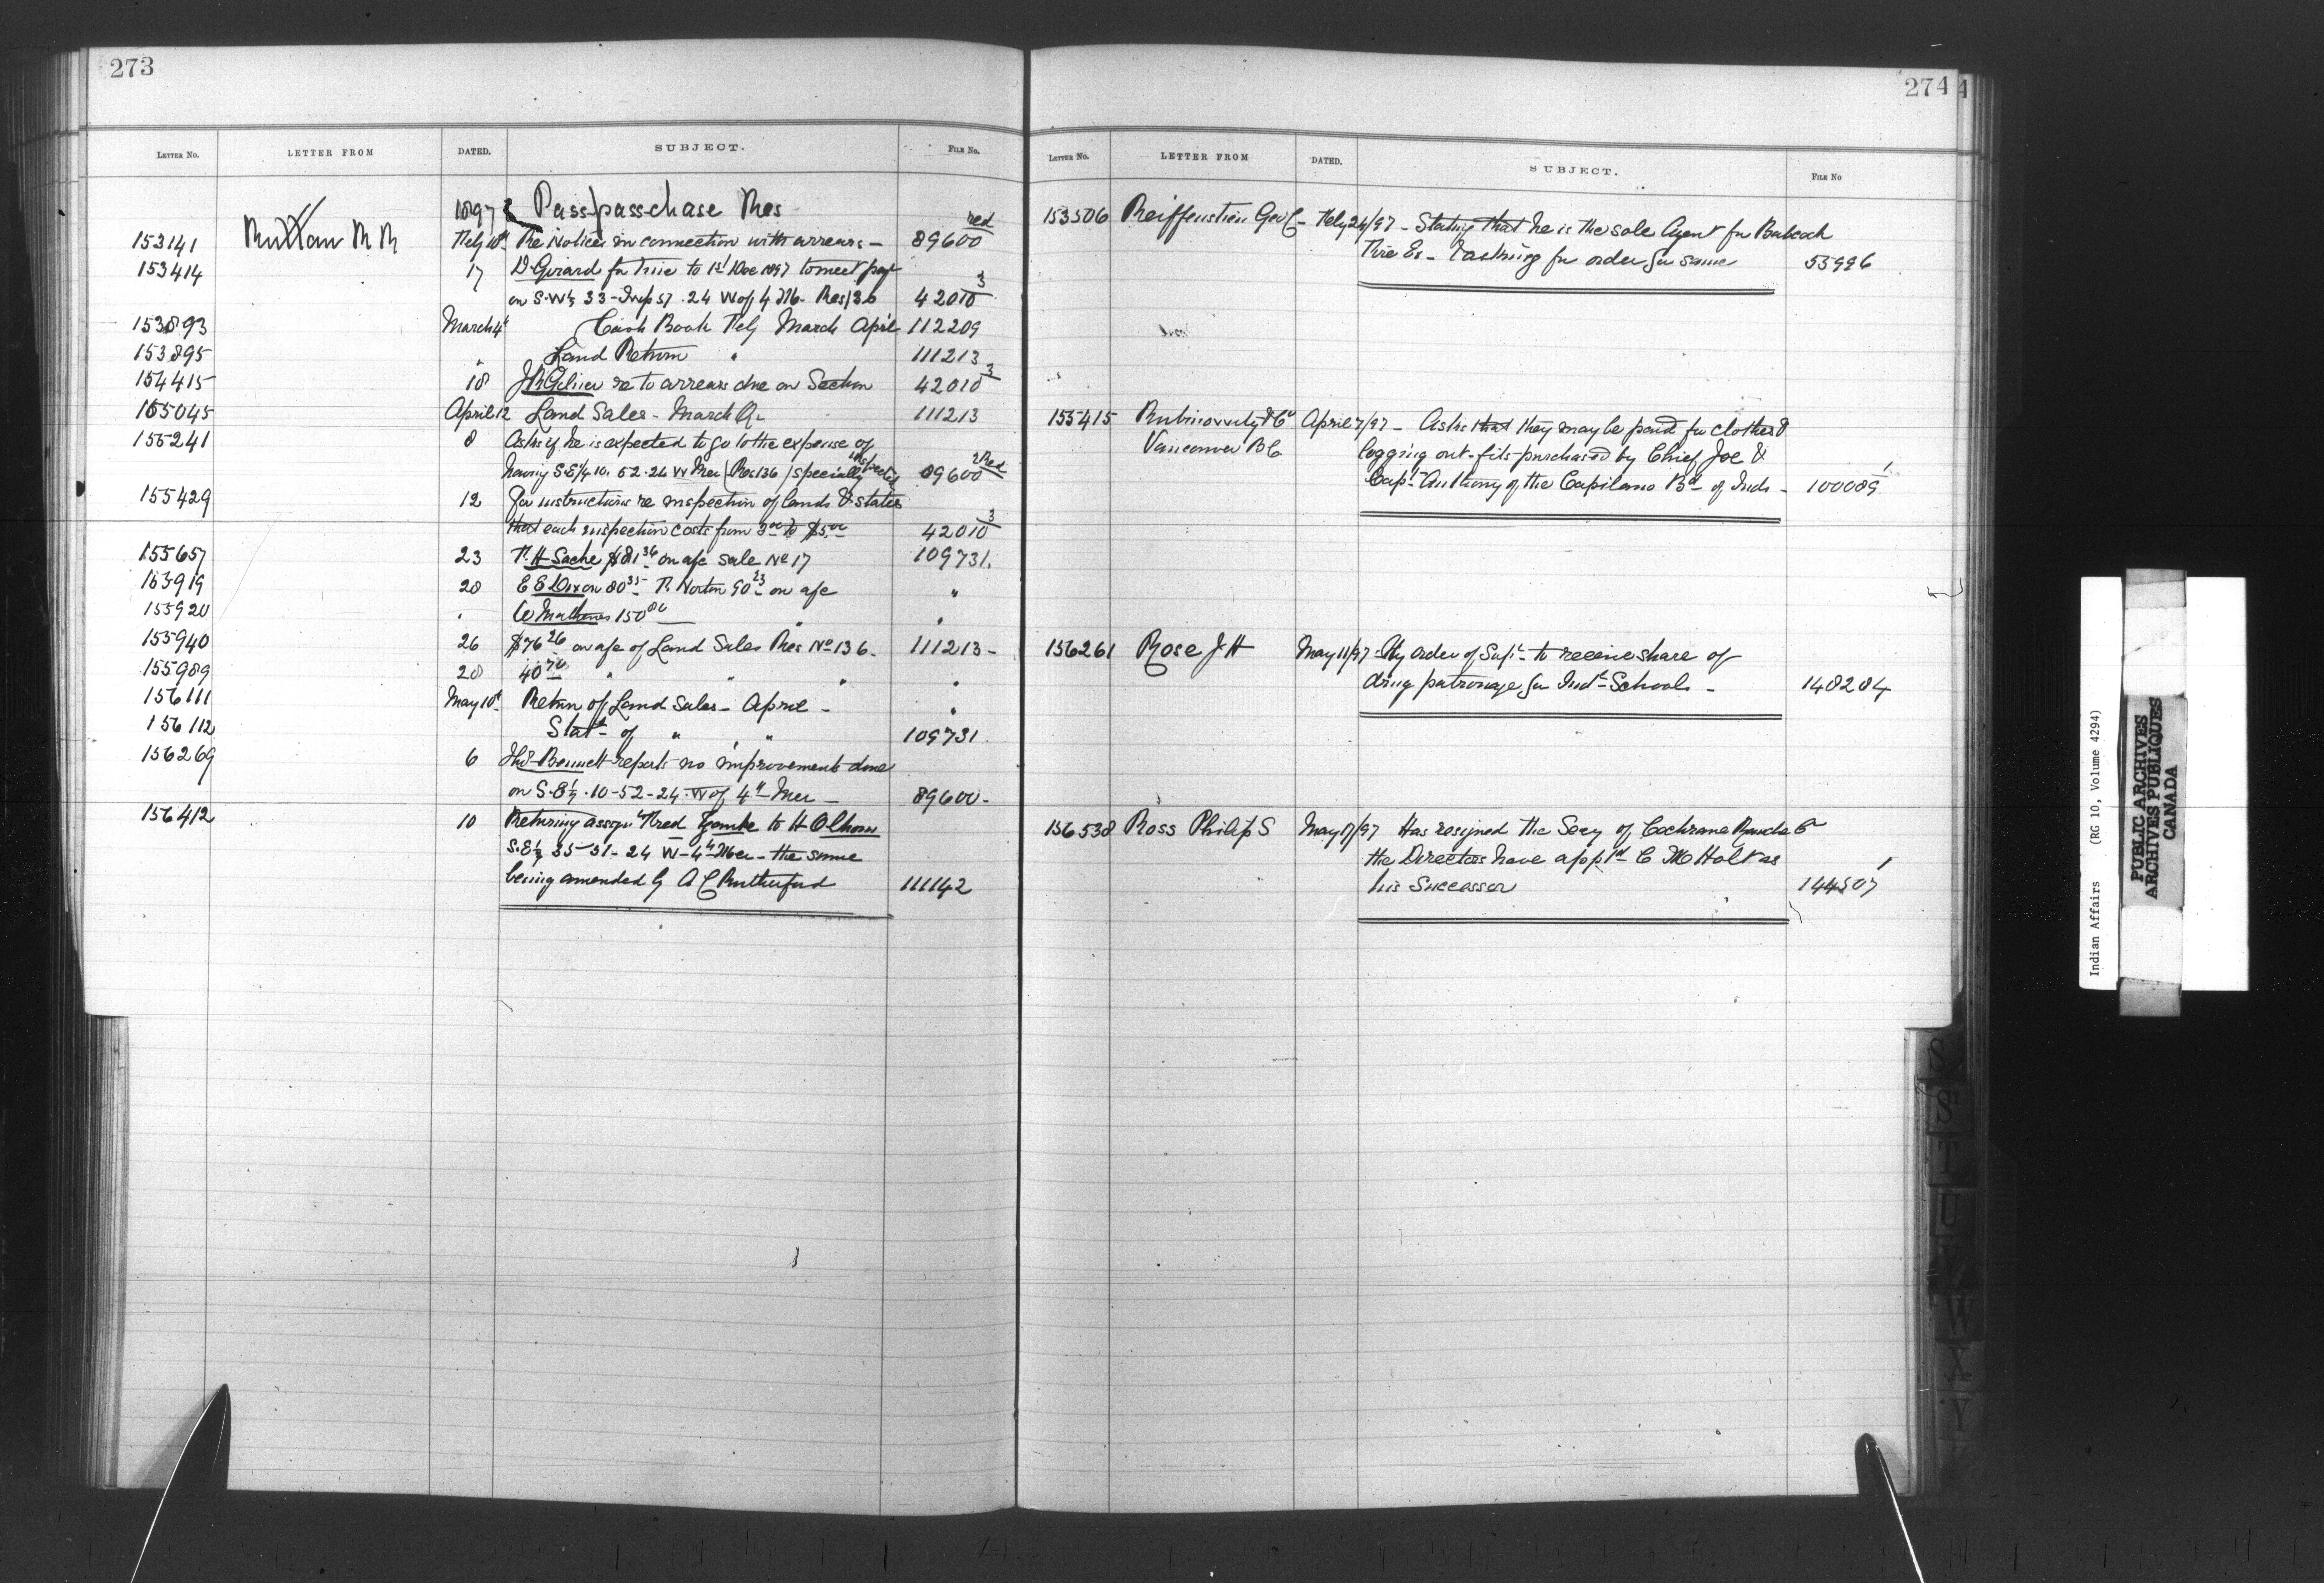 273
LETTER NO. LETTER FROM DATED. SUBJECT. FILE No.
1897 Pass-pass-chase Res
153141 Ruttan R R Feby 10th Re Notices in connection with arrears — 89600 red
153414 17 D. Girard for time to 1st Dec 1897 to meet payt
on S.W¼ 33 - Twp 51 . 24 W of 4 M. Res 136 42010 3
153893 March 4th Cash Book Feby March April 112209
153895 " Land Return " 111213
154415 18 re to arrears due on Section 42010 3
155045 April 12 Land Sales - March Qr 111213
155241 8 Asks if he is expected to go to the expense of
having S.E¼ 10. 52.24 W Mer (Res 136) specially inspected 89600 2 red
155429 12 For instructions re inspection of lands & states
that each inspection costs from 3 00 to $5. 00 42010 3
155657 23 $81 36 on a/c sale No 17 109731.
153919 28 E E Dixon 80 35 R. Norton 90 23 on a/c "
155920 " W Mathews 150 80 " "
155940 26 $76 26 on a/c of Land Sales Res No 136 . 111213 -
155989 28 40 70 " " " "
156111 May 10th Return of Land Sales - April - "
156112 Statt of " " 109731.
156269 6 Thos Bennett reports no improvements done
on S.E¼ . 10-52-24 - W of 4th Mer - 89600 -
156412 10 Returning assignt Fred to H
S.E¼ 35-51-24 W-4th Mer - the same
being amended by A C Rutherford 111142
274
LETTER No. LETTER FROM DATED. SUBJECT. FILE No
153506 Reiffenstien Geo C - Feby 24/97 - Stating that he is the sole Agent for Babcock
Fire Ex - & asking for order for same 55996
155415 & Co April 7/97 - Asks that they may be paid for clothes &
Vancouver B C logging out-fits purchased by Chief Joe &
Capt Anthony of the Capilano Bd of Inds - 100089 1
156261 Rose J H May 11/97 - By order of Supt to receive share of
drug patronage for Indn Schools - 148284
156538 Ross Philip S May 17/97 Has resigned the Secy of Cochrane Ranche Co
the Directors have apptd C M Holt as
his Successor 144507 1
S S T U V W X Y
Indian Affairs (RG 10, Volume 4294)
PUBLIC ARCHIVES
ARCHIVES PUBLIQUES
CANADA